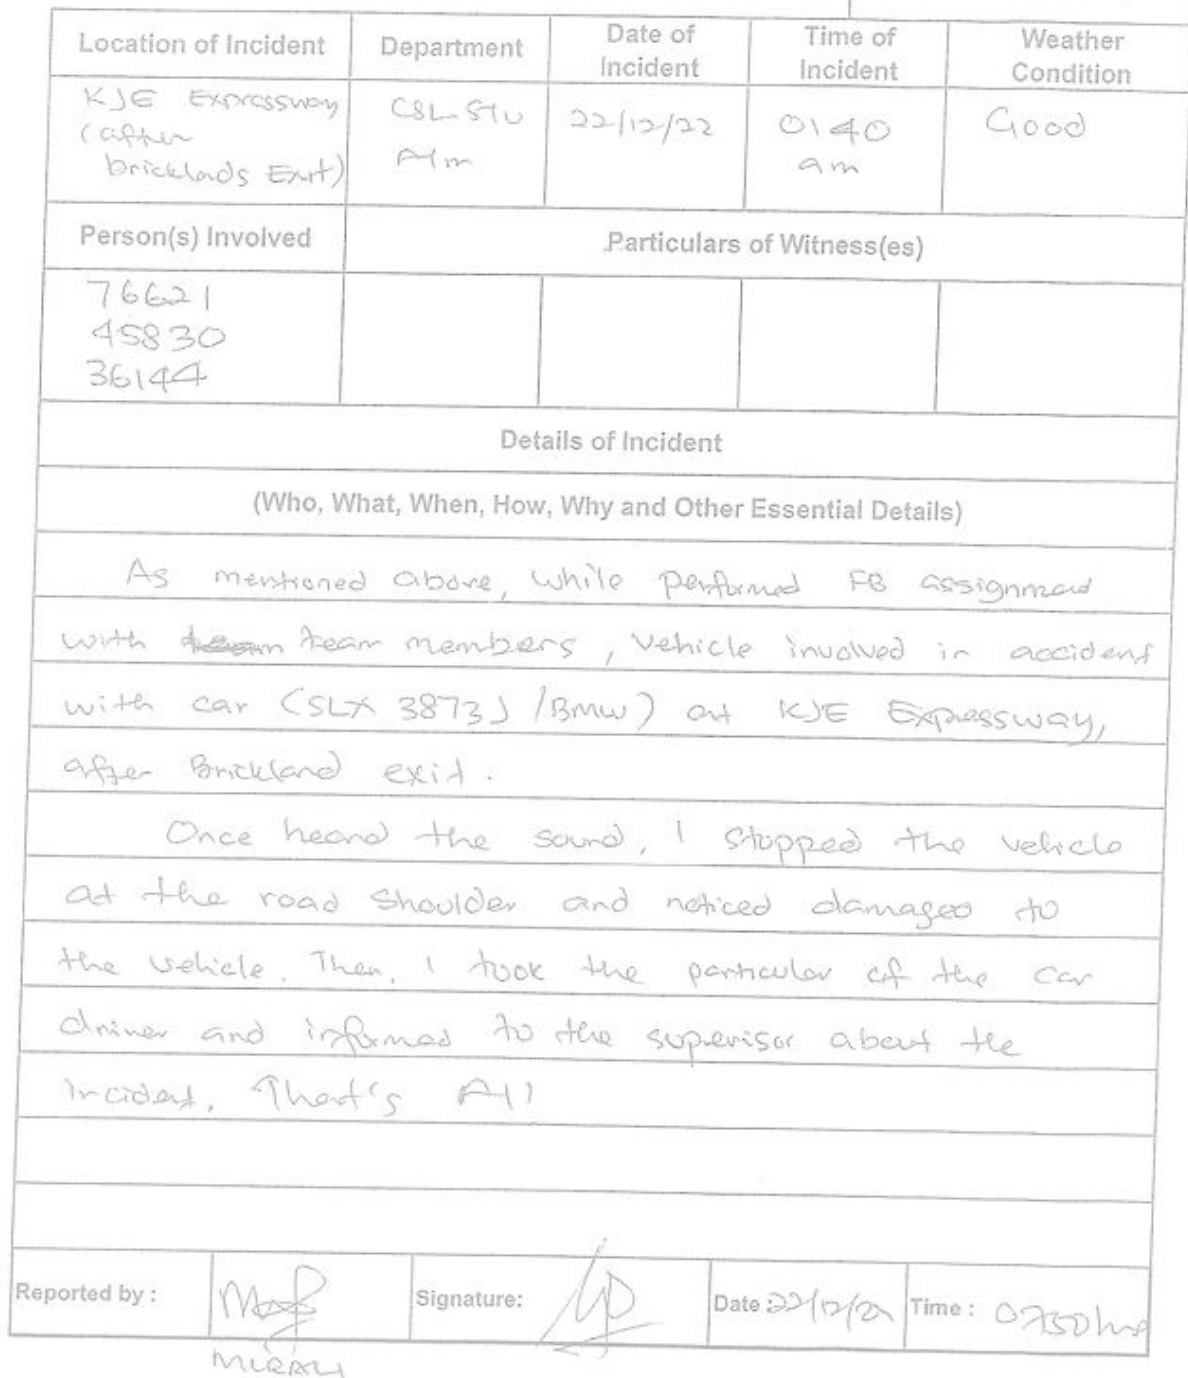 Location of Incident Department Date of Incident Time of Incident Weather Condition
KJE Expressway (after bricklads Exit) 22/12/22 0140 am Good
Person(s) Involved Particulars of Witness(es)
76621
45830
36144
Details of Incident
(Who, What, When, How, Why and Other Essential Details)
As mentioned above, while performed FB assignment
with team team members, vehicle involved in accident
with car (SLX 3873J /BMW) at KJE Expressway,
after Brickland exit.
Once heard the sound, I stopped the vehicle
at the road shoulder and noticed damaged to
the vehicle. Then, I took the particular of the car
driver and informed to the supervisor about the
incident. That's All
Reported by : Signature: Date 22/12/22 Time :